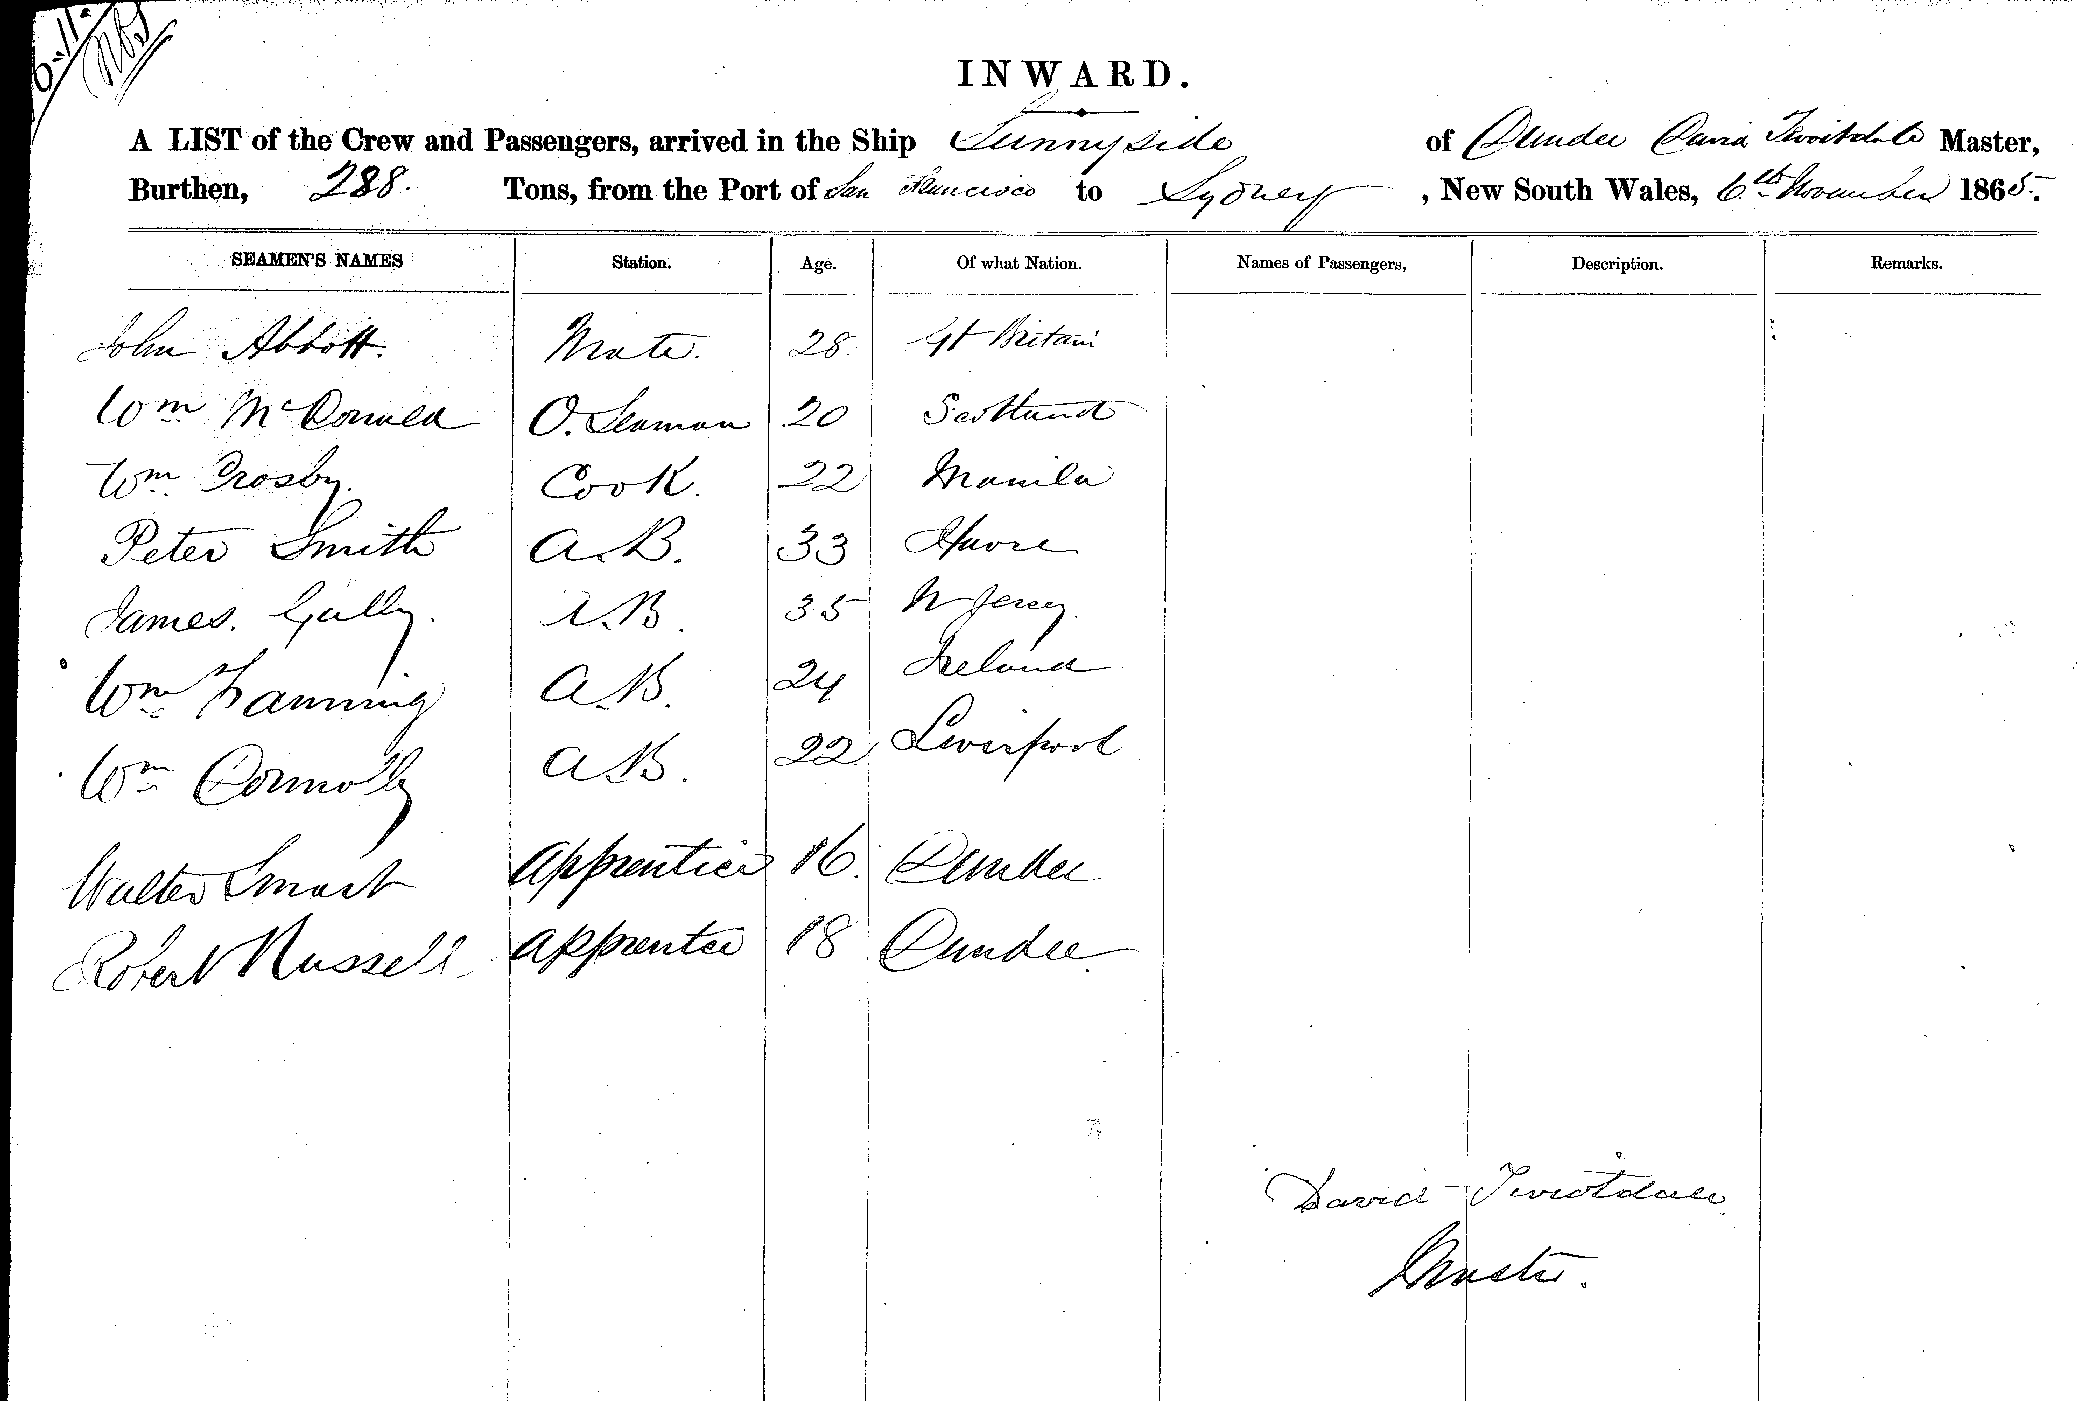 INWARD.
A LIST of the Crew and Passengers, arrived in the Ship Sunnyside of Dundee David Teviotdale Master,
Burthen, 288. Tons, from the Port of San Francisco to Sydney, New South Wales, 6th November 1865.
SEAMEN'S NAMES Station. Age. Of what Nation. Names of Passengers, Description. Remarks.
John Abbott. Mate. 28. Gt Britain
Wm McDonald O. Seaman 20 Scotland
Wm Crosby. Cook. 22 Manila
Peter Smith A.B. 33 Havre
James. Gully. A.B. 35 N Jersey.
Wm Fanning A.B. 24 Ireland
Wm Connolly A.B. 22 Liverpool
Walter Smart Apprentice 16. Dundee
Robert Russell. Apprentice 18 Dundee.
David Teviotdale
Master.